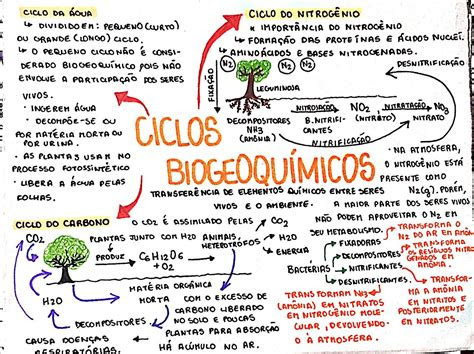 CICLO DA ÁGUA
↳ DIVIDIDO EM: PEQUENO (CURTO)
OU GRANDE (LONGO) CICLO.
↳ O PEQUENO CICLO NÃO É CONSI-
DERADO BIOGEOQUÍMICO POIS NÃO
ENVOLVE A PARTICIPAÇÃO DOS SERES
VIVOS.
• INGEREM ÁGUA
• DECOMPÕE-SE OU
POR MATÉRIA MORTA OU
POR URINA.
• AS PLANTAS USAM NO
PROCESSO FOTOSSINTÉTICO
• LIBERA A ÁGUA PELAS
FOLHAS.
CICLO DO NITROGÊNIO
* IMPORTÂNCIA DO NITROGÊNIO
↳ FORMAÇÃO DAS PROTEÍNAS E ÁCIDOS NUCLEÍ.
↳ AMINOÁCIDOS E BASES NITROGENADAS.
DESNITRIFICAÇÃO
N2 N2 N2
FIXAÇÃO
LEGUMINOSA
DECOMPOSITORES
NH3
(AMÔNIA)
NITROSAÇÃO
B. NITRIFI-
CANTES
NO2
(NITRITO)
NITRATAÇÃO
NO3
NITRATO
NITRIFICAÇÃO
CICLOS
BIOGEOQUÍMICOS
TRANSFERÊNCIA DE ELEMENTOS QUÍMICOS ENTRE SERES
VIVOS E O AMBIENTE.
• NA ATMOSFERA,
O NITROGÊNIO ESTÁ
PRESENTE COMO
N2(g). PORÉM,
A MAIOR PARTE DOS SERES VIVOS
NÃO PODEM APROVEITAR O N2 EM
SEU METABOLISMO.
ENERGIA
BACTÉRIAS
FIXADORAS
DECOMPOSITORES
NITRIFICANTES
DESNITRIFICANTES
TRANSFORMA O
N2 DO AR EM AMÔNIA
TRANSFORMA
RESÍDUOS NITRO
GENADOS EM
AMÔNIA.
TRANSFOR-
MA A AMÔNIA
EM NITRITOS E
POSTERIORMENTE
EM NITRATOS.
TRANSFORMAM NH3
(AMÔNIA) EM NITRATOS
EM NITROGÊNIO MOLE-
CULAR, DEVOLVENDO
À ATMOSFERA.
CICLO DO CARBONO
O CO2 É ASSIMILADO PELAS
PLANTAS JUNTO COM H2O
ANIMAIS,
HETERÓTROFOS
CO2
PRODUZ
C6H12O6
+ O2
CO2
H2O
MATÉRIA ORGÂNICA
MORTA
DECOMPOSITORES
H2O
CAUSA DOENÇAS
RESPIRATÓRIAS
COM O EXCESSO DE
CARBONO LIBERADO
NO SOLO E POUCAS
PLANTAS PARA ABSORÇÃO
HÁ ACÚMULO NO AR.